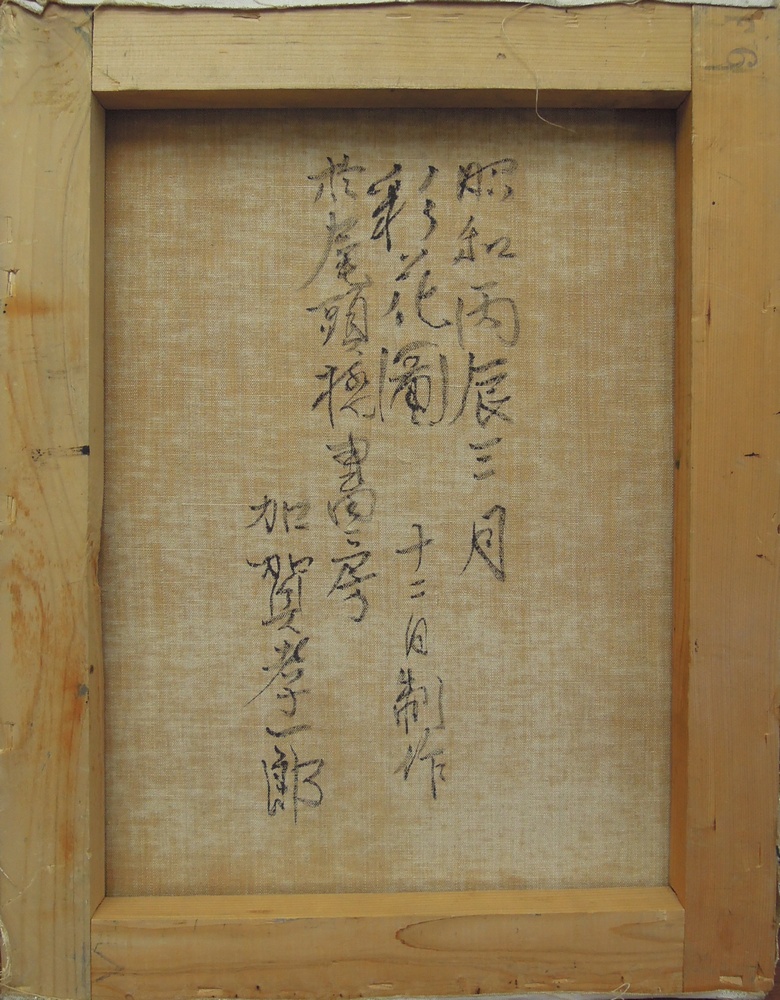 昭和丙辰三月
彩花圖 十二日制作
於尾頭橋畫房
加賀孝一郎